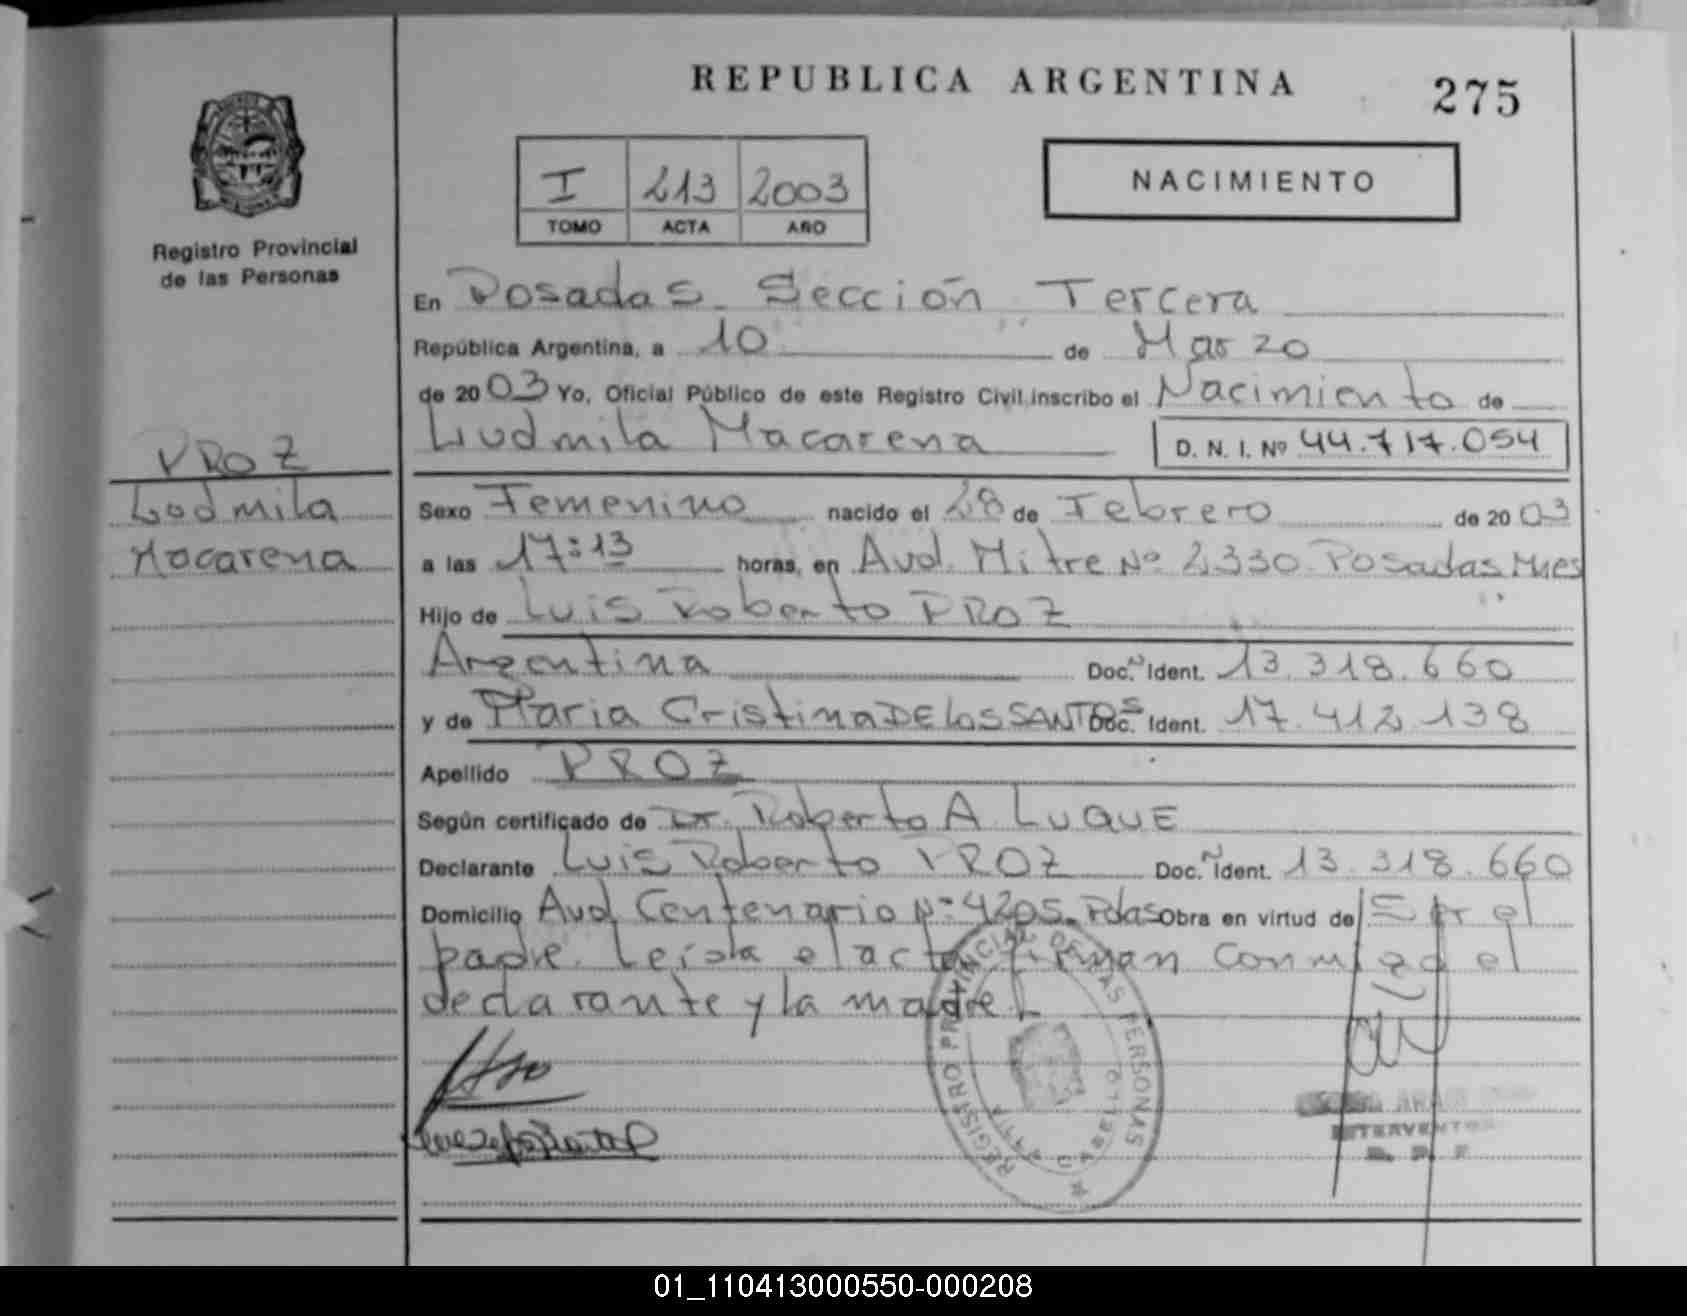 REPUBLICA ARGENTINA
275
I 213 2003
TOMO ACTA AÑO
NACIMIENTO
Registro Provincial
de las Personas
En Posadas Sección Tercera
República Argentina, a 10 de Marzo
de 2003 Yo, Oficial Público de este Registro Civil inscribo el Nacimiento de
Ludmila Macarena D. N. I. Nº 44.717.054
PROZ
Ludmila
Macarena
Sexo Femenino nacido el 28 de Febrero de 2003
a las 17:13 horas, en Avd. Mitre Nº 2330 Posadas Mnes
Hijo de Luis Roberto PROZ
Argentina Doc. N Ident. 13.318.660
y de Maria Cristina DE los SANTOS Doc. Ident. 17.412.138
Apellido PROZ
Según certificado de Dr. Roberto A. LUQUE
Declarante Luis Roberto PROZ Doc. N Ident. 13.318.660
Domicilio Avd Centenario Nº 4205. Pdas Obra en virtud de Ser el
padre. Leída el acta firman conmigo el
declarante y la madre
REGISTRO PROVINCIAL DE LAS PERSONAS
INTERVENTOR
01_110413000550-000208